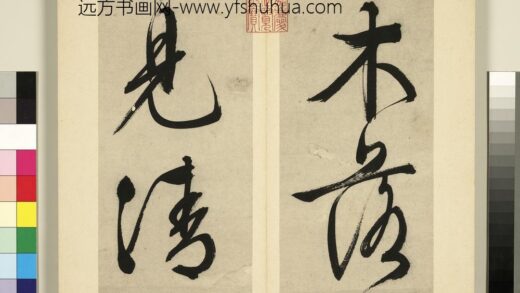 远方书画网-www.yfshuhua.com
木落
見清